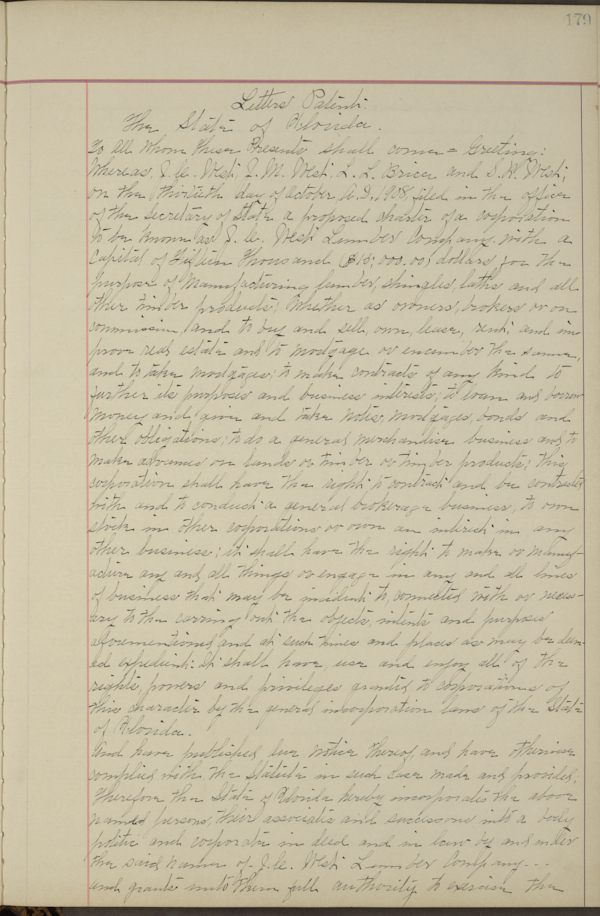 179
Letters Patent.
The State of Florida.
To all Whom these Presents shall come = Greeting:
Whereas, J. C. West, I. M. West, L. L. Bricer and S. H. West,
on the thirtieth day of October, A.D. 1908, filed in the office
of the Secretary of State a proposed charter of a corporation
to be known as J. C. West Lumber Company, with a
Capital of Thousand ($15,000.00) dollars for the
purpose of Manufacturing lumber, shingles, laths and all
other timber products, Whether as owners, brokers or on
commission, and to buy and sell, own, lease, rent, and im
prove real estate and to mortgage or encumber the same,
and to take mortgages; to make contracts of any kind to
further its purposes and business interests; to loan and borrow
money and give and take notes, mortgages, bonds and
other obligations; to do a general merchandise business and to
make advances on lands or timber or timber products; this
corporation shall have the right to contract and be contracted
with and to conduct a general brokerage business, to own
stock in other corporations or own an interest in any
other business; it shall have the right to make or manuf-
acture any and all things or engage in any and all lines
of business that may be incident to, connected with or neces-
sary to the carrying out the objects, intents and purposes
aforementioned and at such times and places as may be deem-
ed expedient. It shall have, use and enjoy all of the
rights, powers and privileges granted to corporations of
this character by the general incorporation laws of the State
of Florida.
And have published due notice thereof, and have otherwise
complied with the Statute in such case made and provided;
Therefore the State of Florida hereby incorporates the above
named persons, their associates and successors into a body
politic and corporate in deed and in law by and under
the said name of J. C. West Lumber Company...
and grants unto Them full authority to exercise the